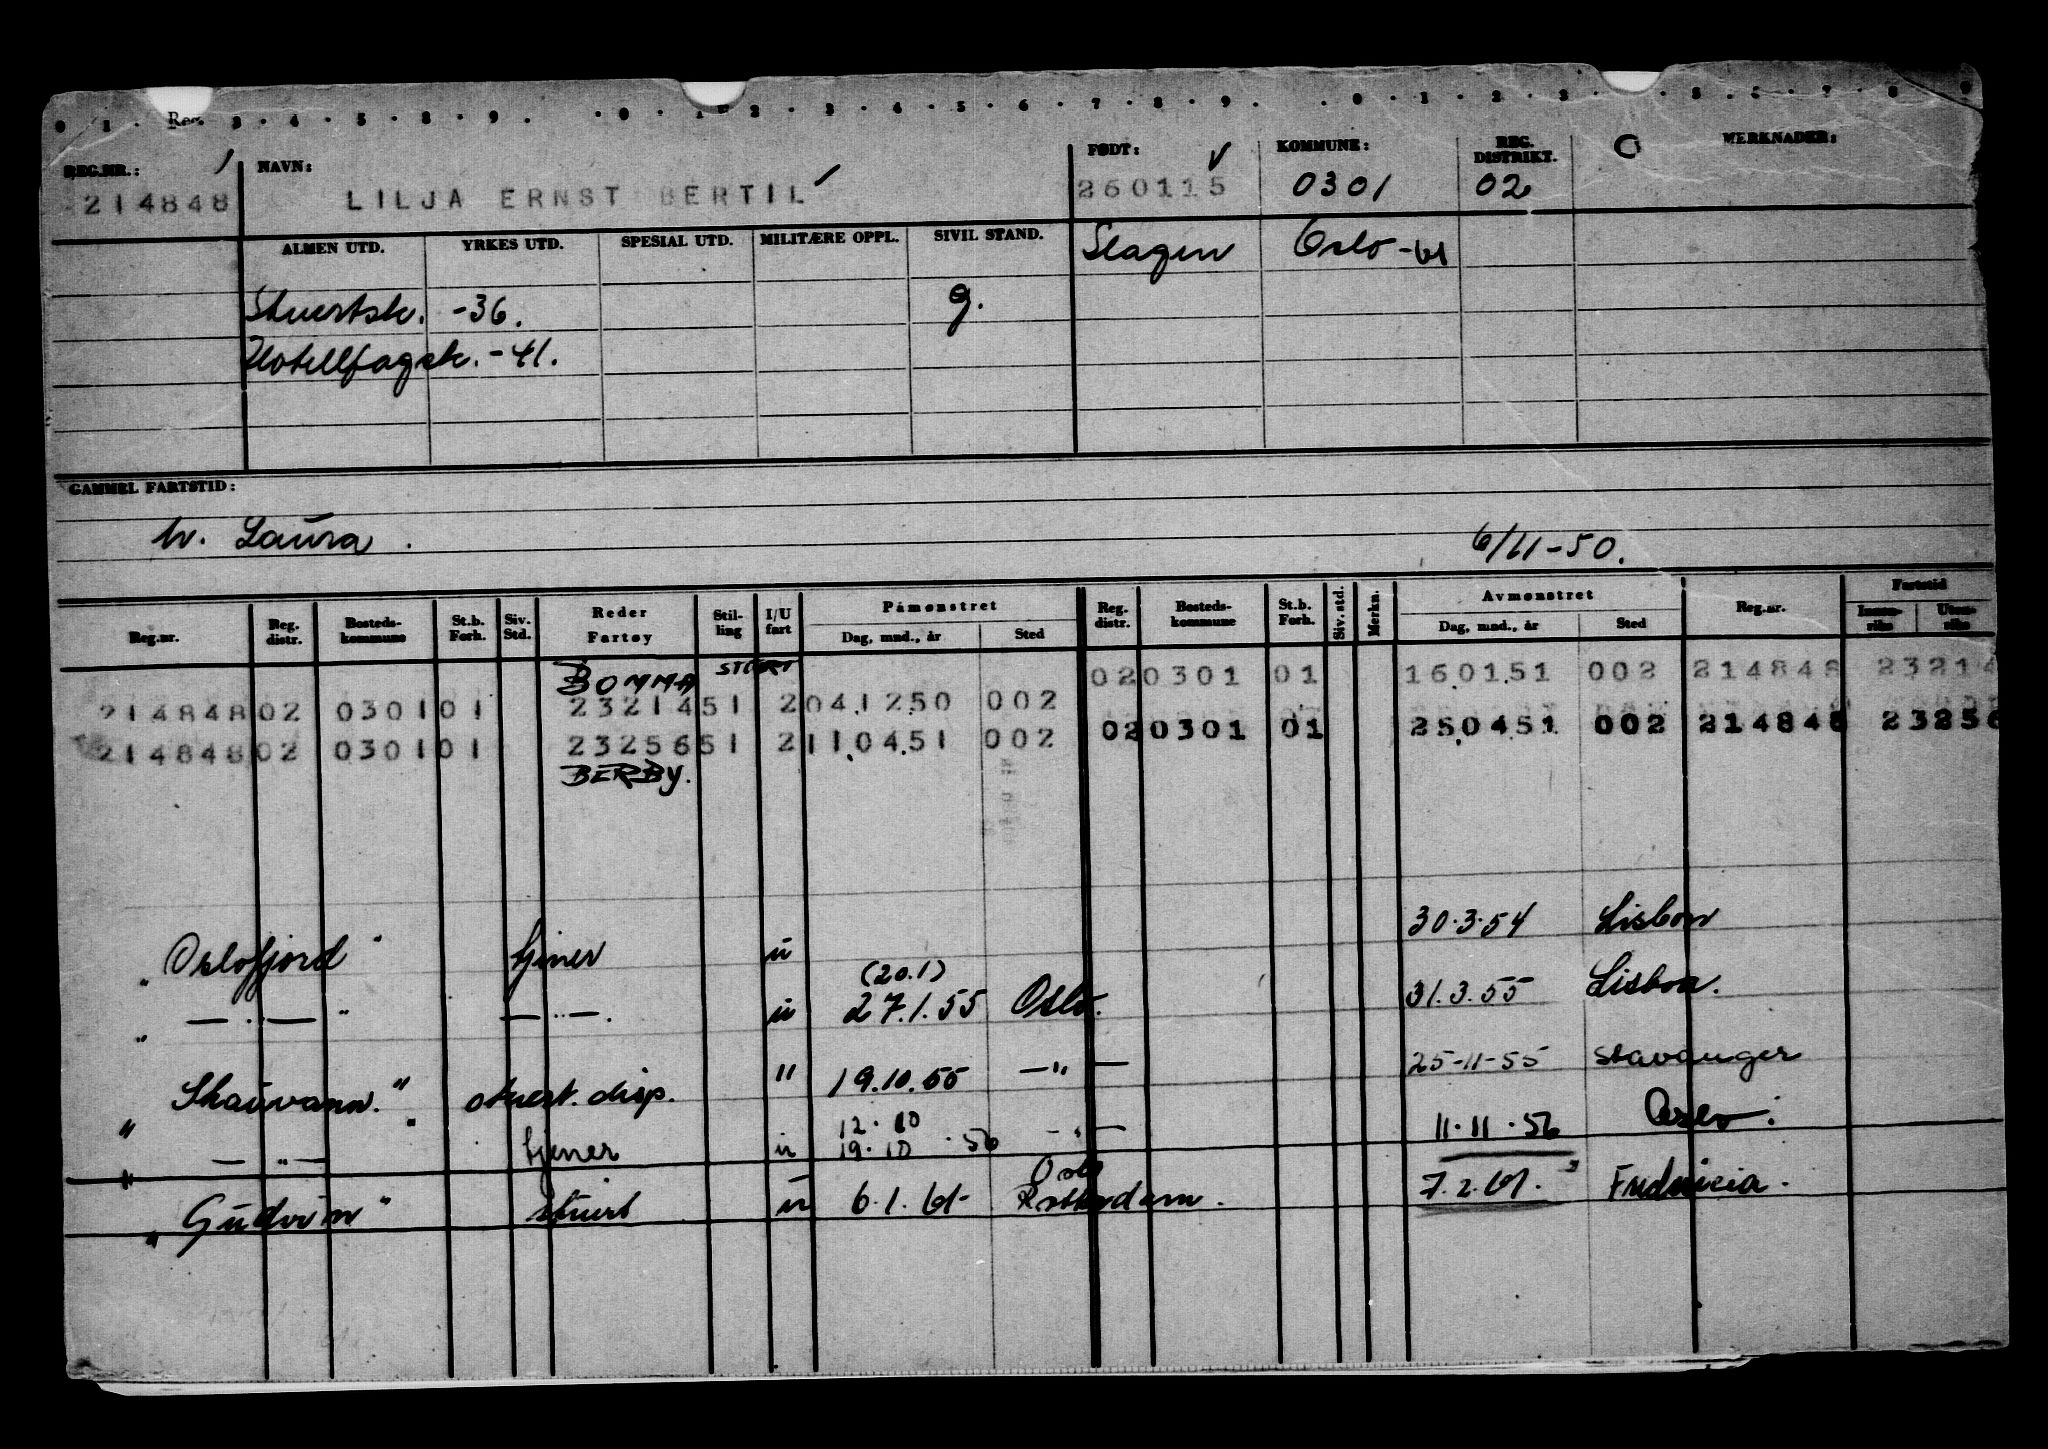 0 1 . Reg. 3 . 4 . 5 . 8 . 9 . . 0 . 1 . 2 . 3 . 4 . 5 . 6 . 7 . 8 . 9 . . 0 . 1 . 2 . 3 . . 5 . 6 . 7 . 8 . 9
REG.NR.: NAVN: FØDT: KOMMUNE: REG. DISTRIKT. MERKNADER:
214848 LILJA ERNST BERTIL 260115 0301 02
ALMEN UTD. YRKES UTD. SPESIAL UTD. MILITÆRE OPPL. SIVIL STAND. Slagen Oslo -61
Stuertsk. -36. g.
Hotellfagsk. -41.
GAMMEL FARTSTID:
h. Laura . 6/11-50.
Reg.nr. Reg. distr. Bosteds-kommune St.b. Forh. Siv. Std. Reder Fartøy Stil-ling I/U fart Påmønstret Dag, mnd., år Sted Reg. distr. Bosteds-kommune St.b. Forh. Siv. std. Merkn. Avmønstret Dag, mnd., år Sted Reg.nr. Fartstid Innen-riks Uten-riks
BOMMA STUERT 020301 01 160151 002 214848 23214
214848 02 0301 01 23214 51 2 041250 002
214848 02 0301 01 23256 51 2 110451 002 020301 01 250451 002 214848 23256
BERBY.
"Oslofjord" tjener u 30.3.54 Lisbon
" — " — " — " — . u (20.1) 27.1.55 Oslo. 31.3.55 Lisboa.
"Skauvann." stuert. disp. " 19.10.55 — " — 25-11-55 Stavanger
— " — tjener u 12.10 19.10 .56 — " — 11.11.56 Oslo.
"Gudrun" stuert u 6.1.61 Oslo Rotterdam. 7.2.61. Fredericia.